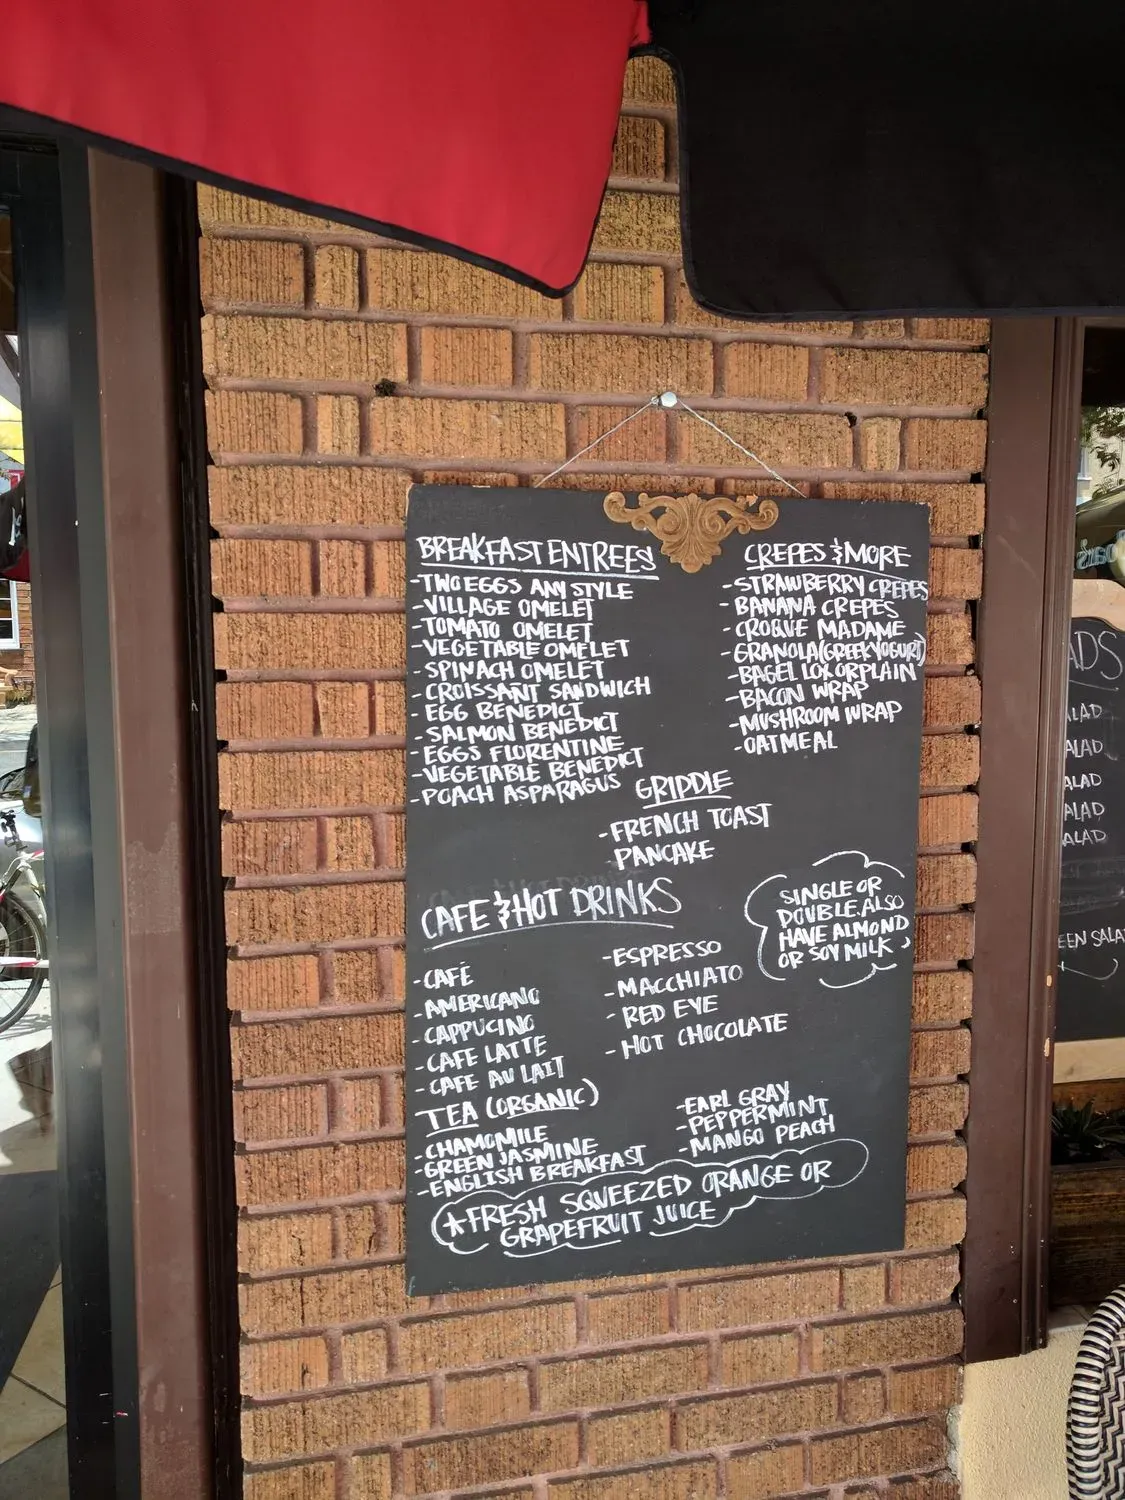 BREAKFAST ENTREES
-TWO EGGS ANY STYLE
-VILLAGE OMELET
-TOMATO OMELET
-VEGETABLE OMELET
-SPINACH OMELET
-CROISSANT SANDWICH
-EGG BENEDICT
-SALMON BENEDICT
-EGGS FLORENTINE
-VEGETABLE BENEDICT
-POACH ASPARAGUS
CREPES & MORE
-STRAWBERRY CREPES
-BANANA CREPES
-CROQUE MADAME
-GRANOLA(GREEK YOGURT)
-BAGEL LOX OR PLAIN
-BACON WRAP
-MUSHROOM WRAP
-OATMEAL
GRIDDLE
-FRENCH TOAST
PANCAKE
CAFE & HOT DRINKS
-CAFÉ
-AMERICANO
-CAPPUCINO
-CAFE LATTE
-CAFE AU LAIT
-ESPRESSO
-MACCHIATO
-RED EYE
-HOT CHOCOLATE
SINGLE OR
DOUBLE. ALSO
HAVE ALMOND
OR SOY MILK
TEA (ORGANIC)
-CHAMOMILE
-GREEN JASMINE
-ENGLISH BREAKFAST
-EARL GRAY
-PEPPERMINT
-MANGO PEACH
*FRESH SQUEEZED ORANGE OR
GRAPEFRUIT JUICE
ADS
LAD
ALAD
ALAD
ALAD
ALAD
EEN SALA